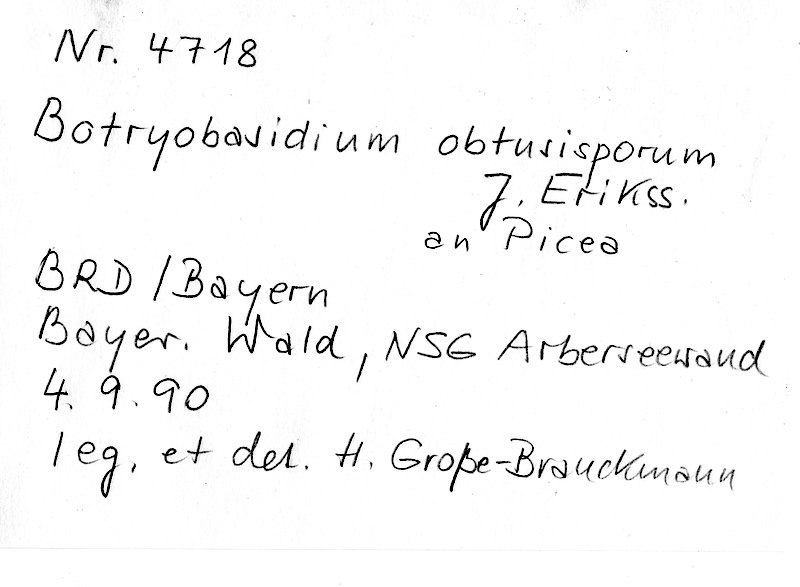 Nr. 4718
Botryobasidium obtusisporum
J. Erikss.
an Picea
BRD / Bayern
Bayer. Wald, NSG Arberseewand
4. 9. 90
leg. et det. H. Große-Brauckmann